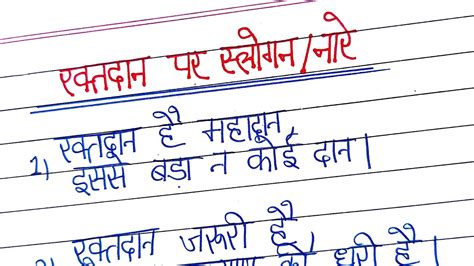 रक्तदान पर स्लोगन/नारे
1) रक्तदान है महादान
इससे बड़ा न कोई दान।
रक्तदान जरूरी है
की धुरी है।